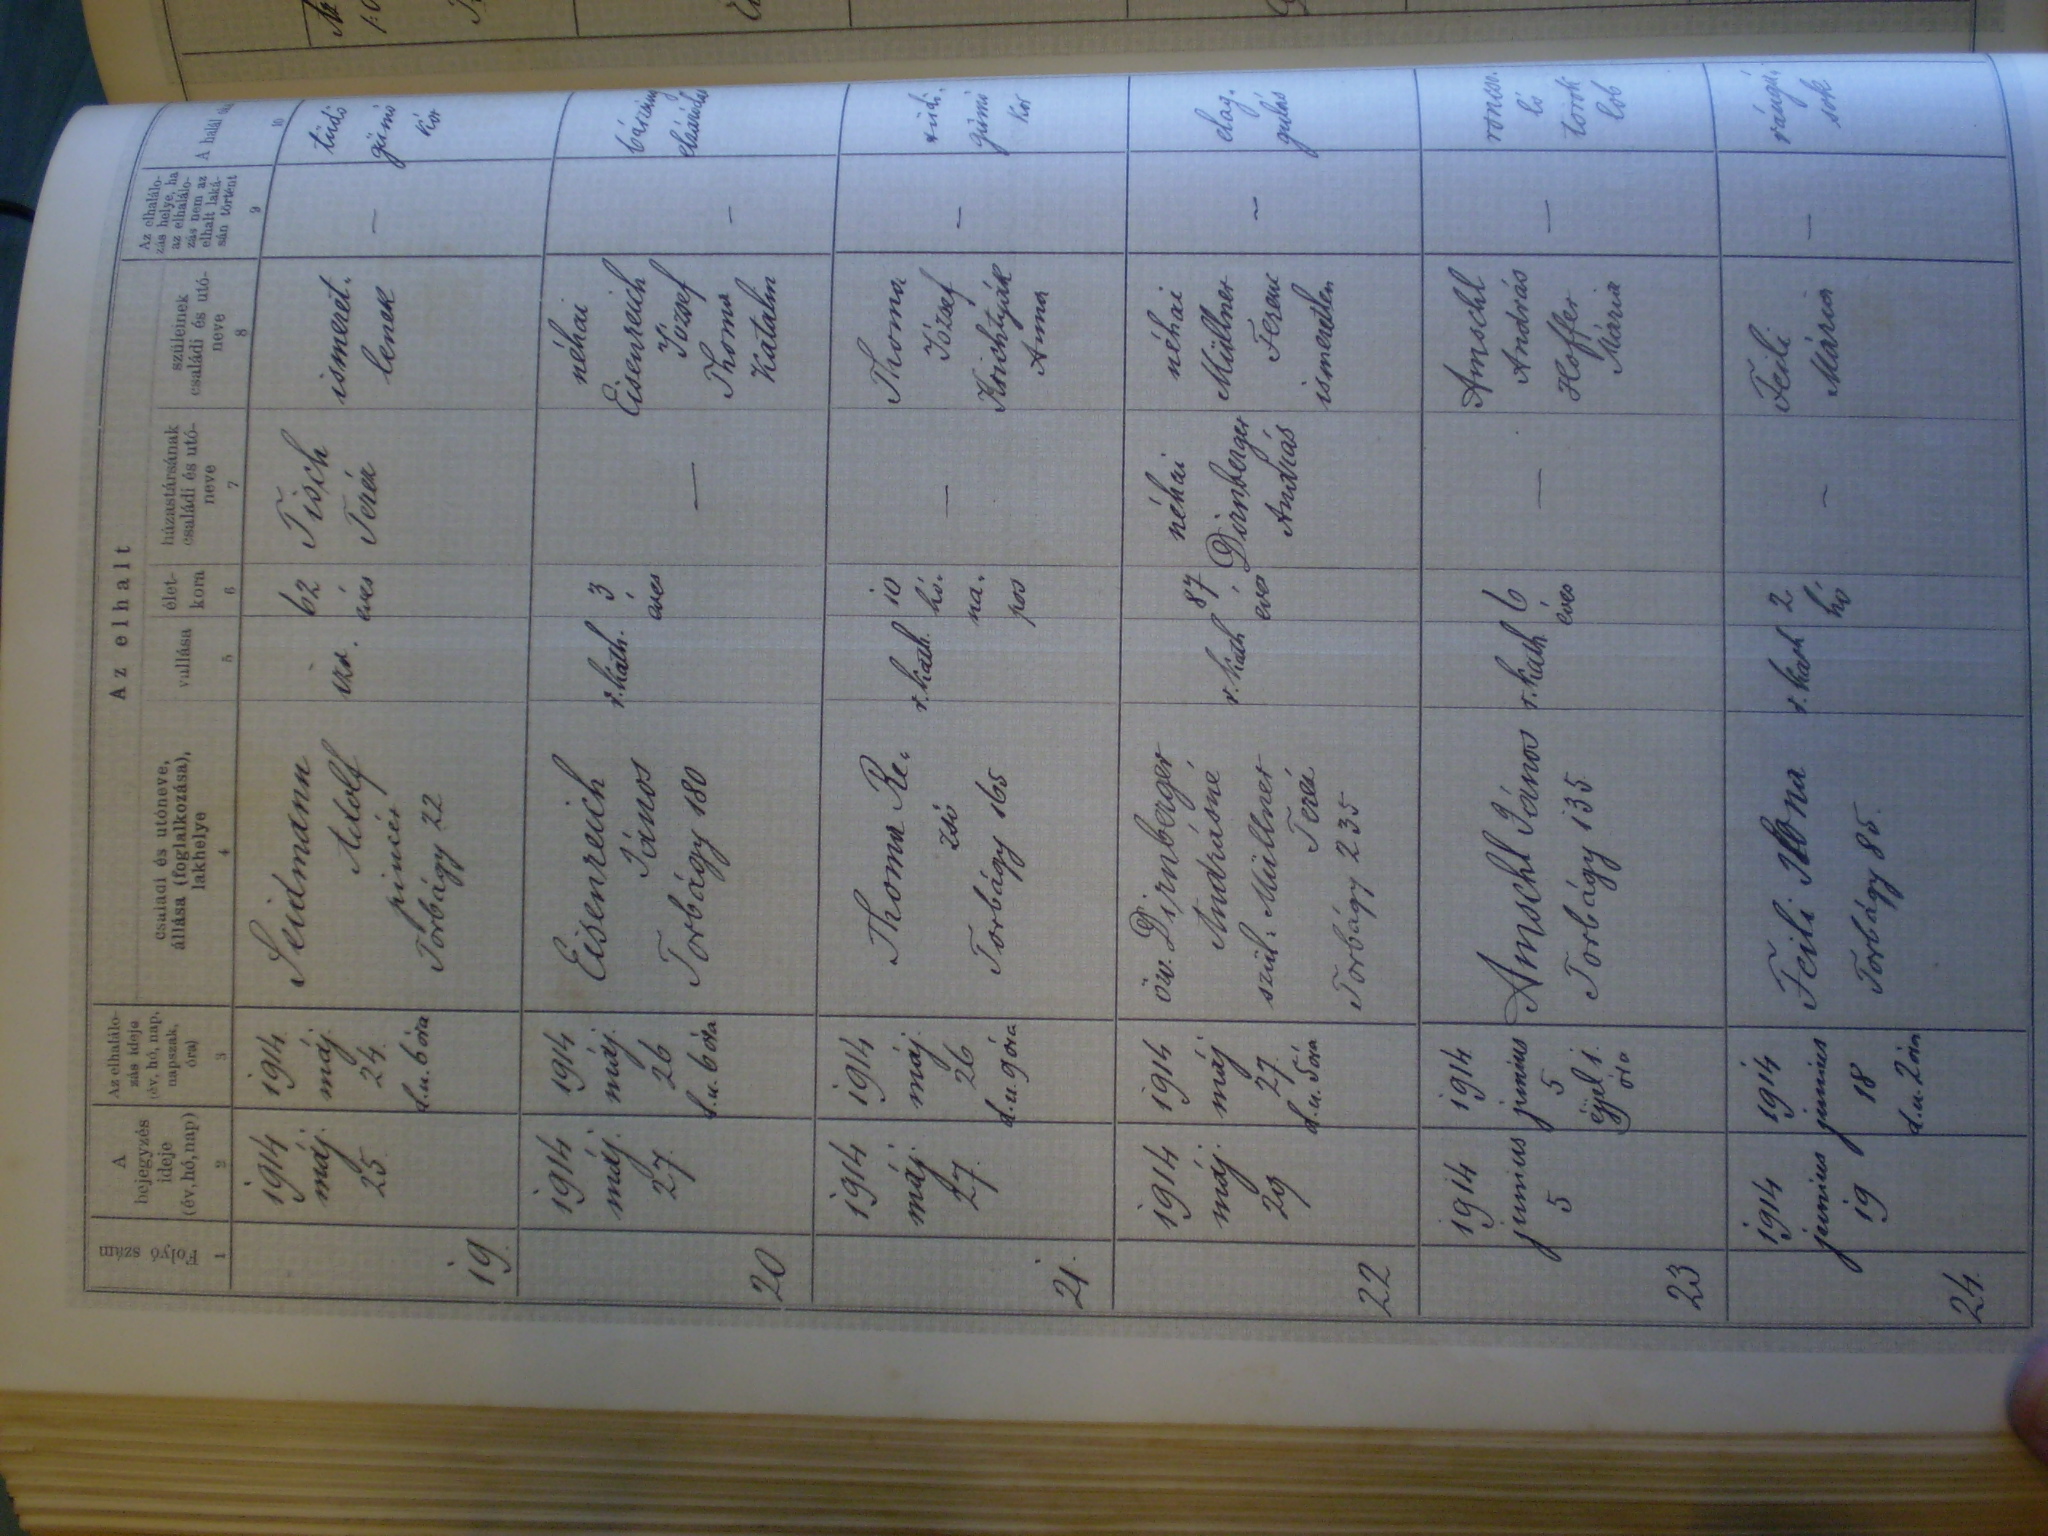 Az elhalt
Folyó szám
A bejegyzés ideje (év, hó, nap)
Az elhalálo-
zás ideje
(év, hó, nap,
napszak,
óra)
családi és utóneve,
állása (foglalkozása),
lakhelye
vallása
élet-
kora
házastársának
családi és utó-
neve
szüleinek
családi és utó-
neve
Az elhalálo-
zás helye, ha
az elhalálo-
zás nem az
elhalt laká-
sán történt
A halál
1 2 3 4 5 6 7 8 9 10
19.
1914
máj.
25.
1914
máj.
24.
d.u. 6 óra
Seidmann
Adolf
pincér
Torbágy 22
izr.
62
éves
Tisch
Teréz
ismeret.
lenek
—
tüdő
gümő
kór
20
1914
máj.
27.
1914
máj.
26
d.u. 6 óra
Eisenreich
János
Torbágy 180
r. kath.
3
éves
—
néhai
Eisenreich
József
Thoma
Katalin
—
21.
1914
máj.
27.
1914
máj.
26
d.u. 9 óra
Thoma Re.
zsi
Torbágy 165
r. kath.
10
hó.
na.
pos
—
Thoma
József
Krichtyák
Anna
—
tüdő.
gümő
kór
22
1914
máj.
29
1914
máj
27.
d.u. 5 óra
öw. Dirnberger
Andrásné
szül. Müllner
Teréz
Torbágy 235
r. kath
87
éves
néhai
Dirnberger
András
néhai
Müllner
Ferenc
ismeretlen
—
elag.
gulás
23
1914
junius
5
1914
junius
5
éjjel 1.
óra
Amschl János
Torbágy 135
r. kath
6
éves
—
Amschl
András
Hoffer
Mária
—
roncso.
ló
torok
lob
24.
1914
junius
19
1914
junius
18
d.u. 2 óra
Feili Ilona
Torbágy 85.
r. kath
2
hó
—
Feili
Mária
—